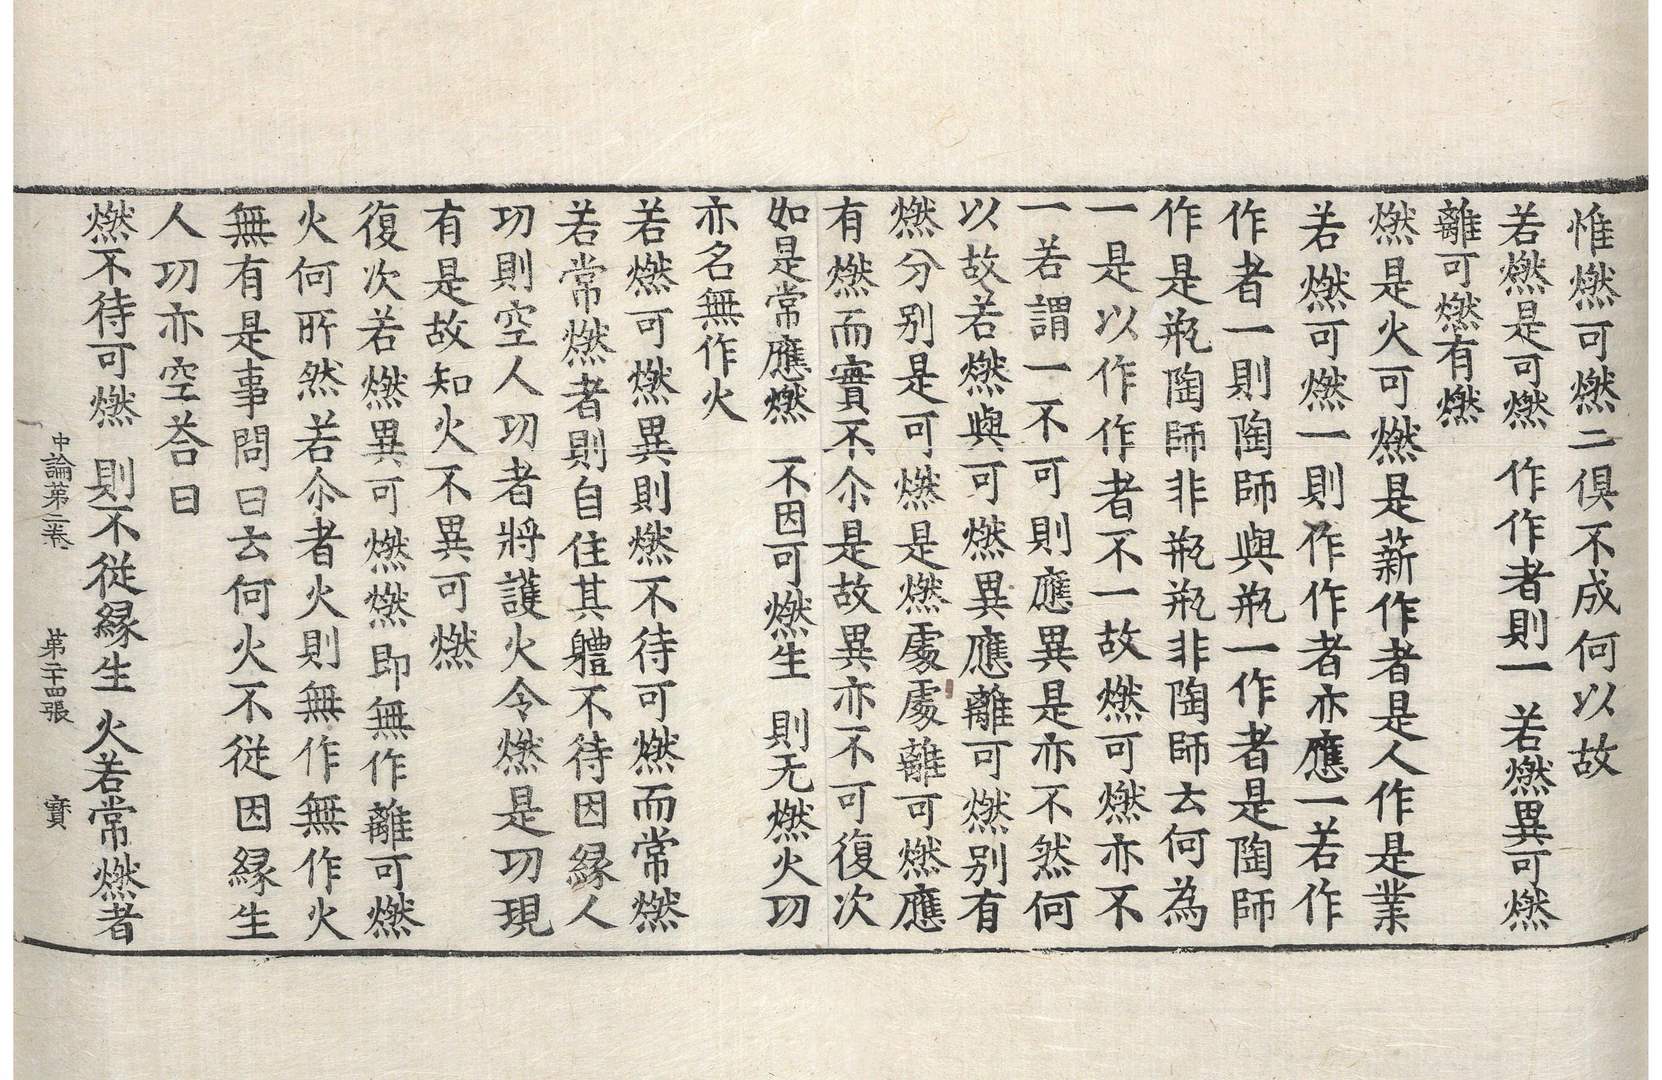 惟燃可燃二俱不成何以故
若燃是可燃 作作者則一 若燃異可燃
離可燃有燃
燃是火可燃是薪作者是人作是業
若燃可燃一則作作者亦應一若作
作者一則陶師與瓶一作者是陶師
作是瓶陶師非瓶瓶非陶師云何為
一是以作作者不一故燃可燃亦不
一若謂一不可則應異是亦不然何
以故若燃與可燃異應離可燃別有
燃分別是可燃是燃處處離可燃應
有燃而實不尒是故異亦不可復次
如是常應燃 不因可燃生 則无燃火功
亦名無作火
若燃可燃異則燃不待可燃而常燃
若常燃者則自住其體不待因緣人
功則空人功者將護火令燃是功現
有是故知火不異可燃
復次若燃異可燃燃即無作離可燃
火何所然若尒者火則無作無作火
無有是事問曰云何火不從因緣生
人功亦空荅曰
燃不待可燃 則不從緣生 火若常燃者
中論第二卷 第二十四張 寶